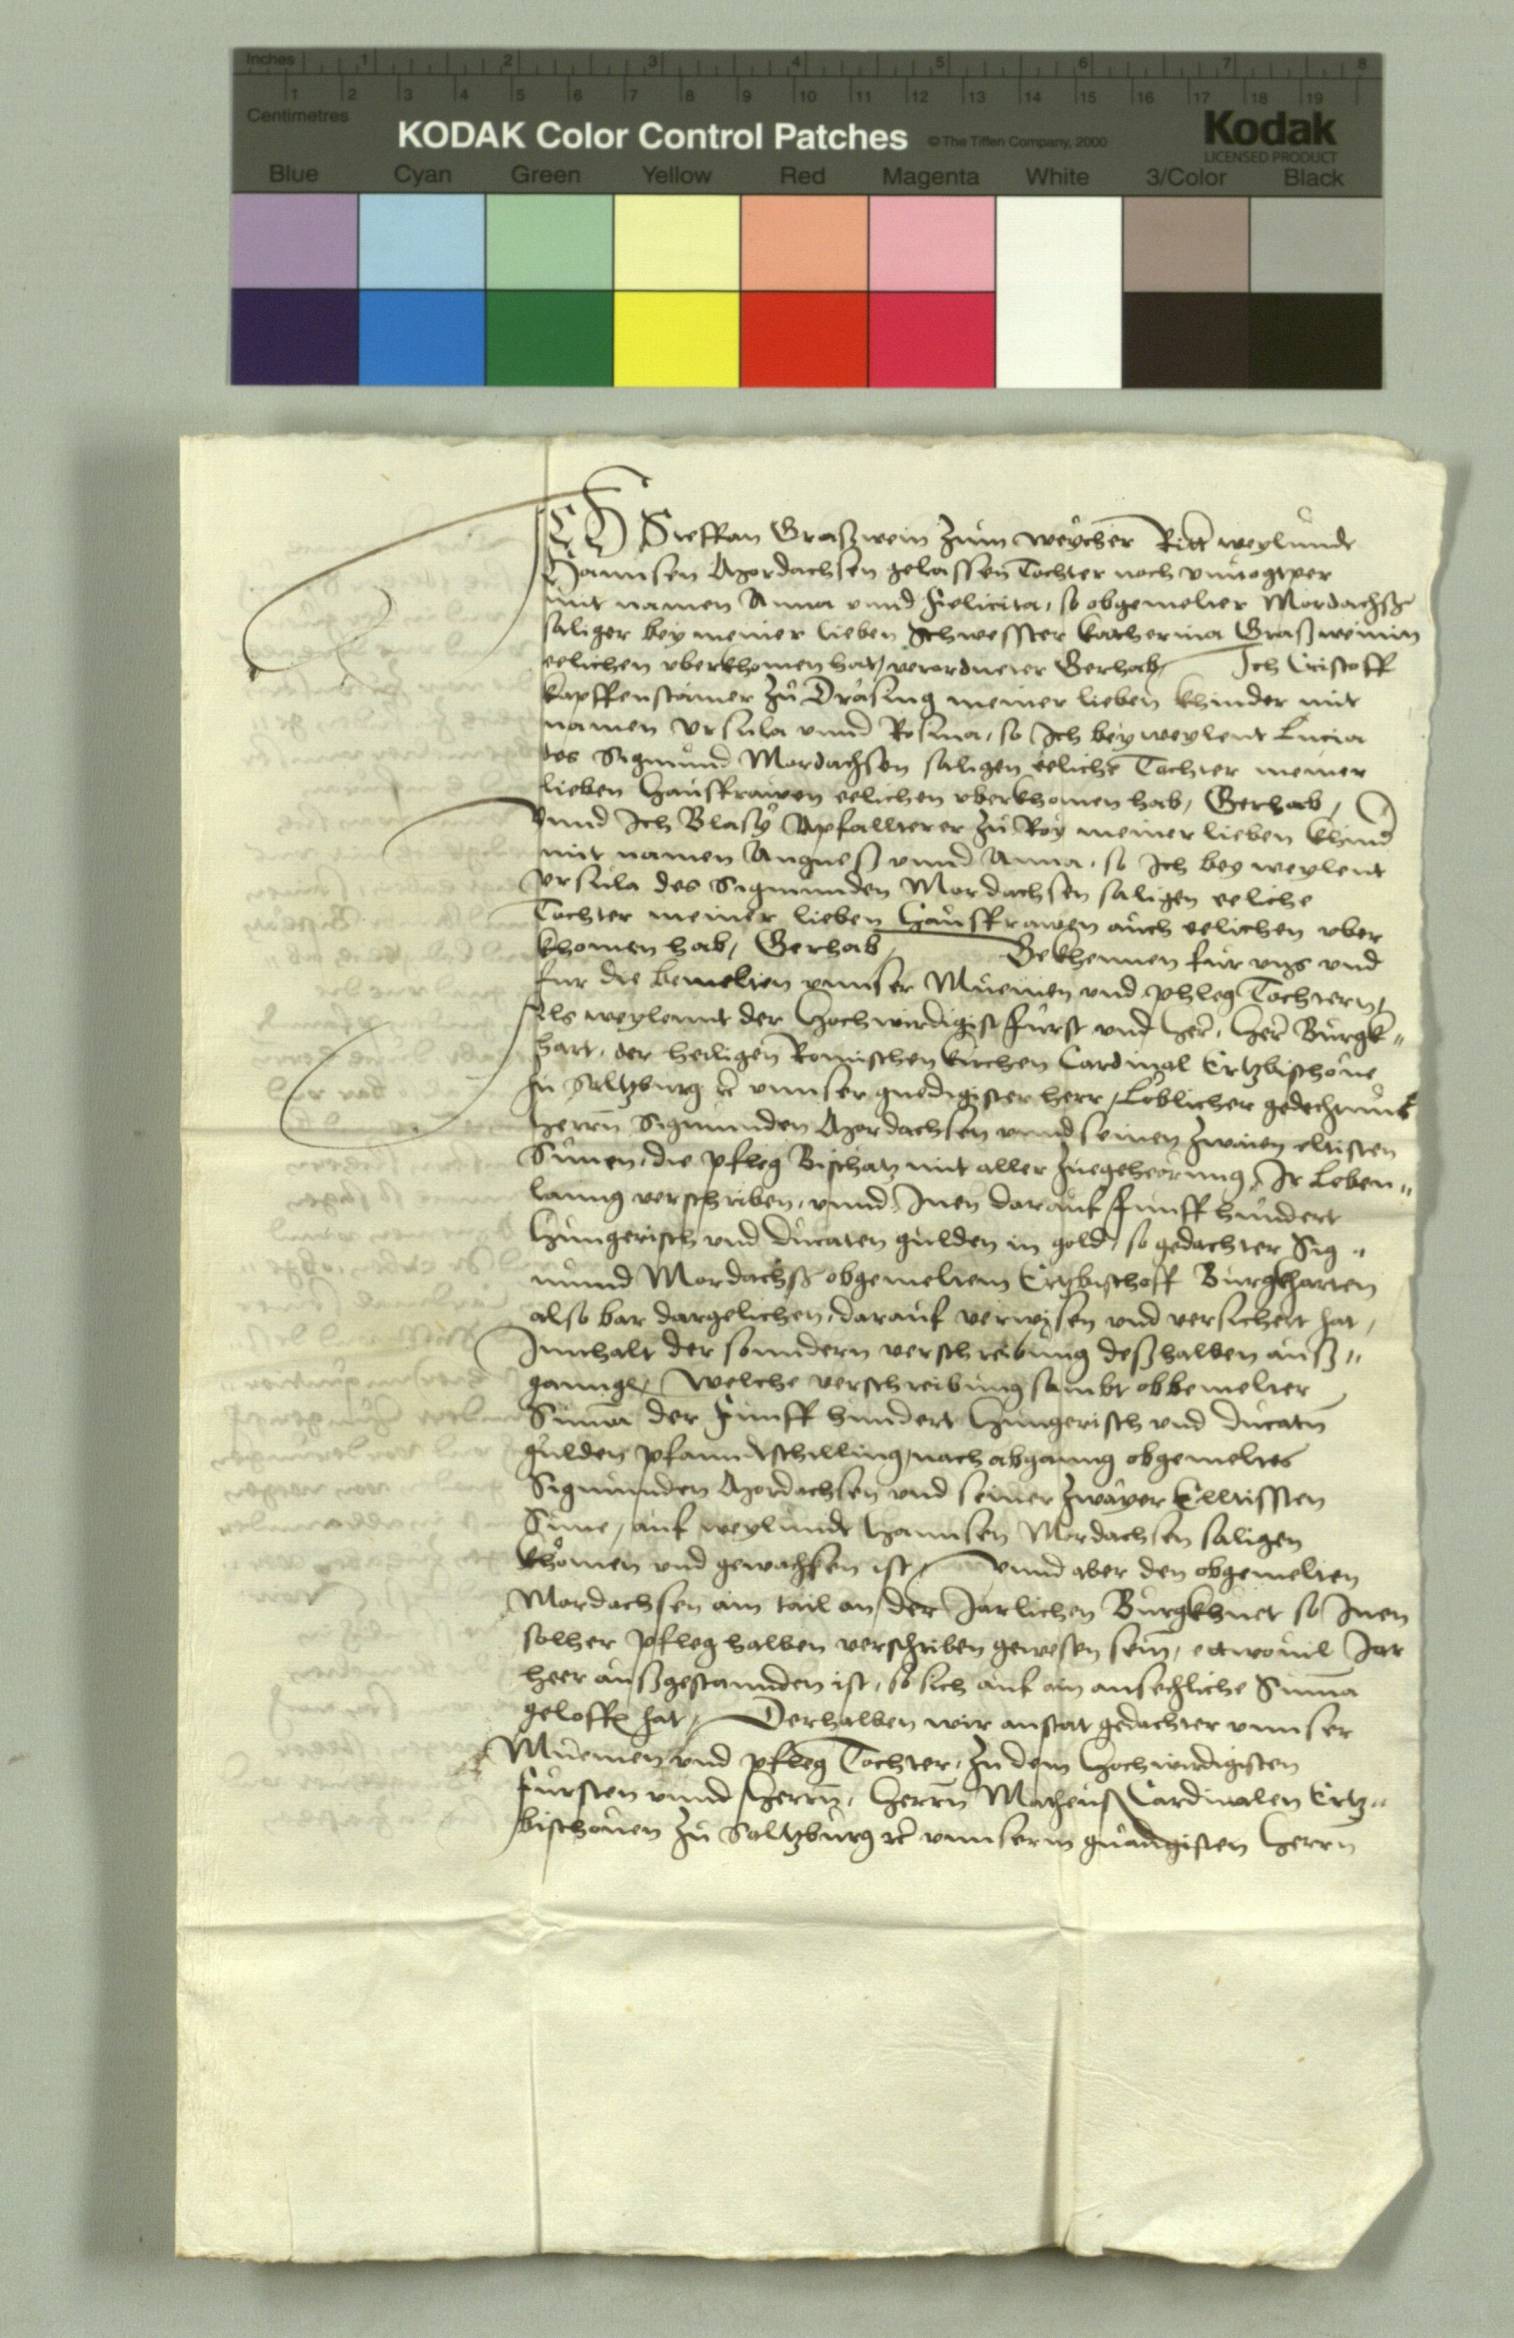 Inches 1 2 3 4 5 6 7 8
Centimetres 1 2 3 4 5 6 7 8 9 10 11 12 13 14 15 16 17 18 19
KODAK Color Control Patches © The Tiffen Company, 2000 Kodak
LICENSED PRODUCT
Blue Cyan Green Yellow Red Magenta White 3/Color Black
ICH Steffan Graszwein zum weÿcher Ritt weylundt
Hannsen Mordachsen gelassen Tochter noch
mit namen Anna vnnd Felicita, so obgemelter Mordachß
saliger bey meiner lieben Schwesster Katherina Graszweinin
eelichen vberkhomen hat, verordneter Gerhab, Ich Cristoff
Kapffenstainer zu Dräsing meiner lieben khinder mit
namen Vrsula vnnd Rosina, so Ich bey weylent Lucia
des Sigmund Mordachsen saligen eeliche Tochter meiner
lieben Hausfrawen eelichen vberkhomen hab, Gerhab,
Vnnd Ich Blasÿ Apfallterer zu Roy meiner lieben khind
mit namen Angneß vnnd Anna, so Ich bey weylent
Vrsula des Sigmunden Mordachsen saligen eeliche
Tochter meiner lieben Hausfrawen auch eelichen vber
khomen hab, Gerhab, Bekhennen für vns vnd
für die bemelten vnnser Muemen vnd phleg Tochtern,
Als weylennt der Hochwirdigist Fürst vnd Her, Her Burgk„
hart, der heiligen Romischen kirchen Cardinal Ertzbischoue
zu Saltzburg rc vnnser gnedigister herr, Loblicher gedechtnus
Herrn Sigmunden Mordachsen vnnd seinen zwaien eltisten
Sunen, die pfleg Bischatz mit aller zuegeheerung, Ir Leben„
lanng verschriben, vnnd Inen darauf Funff hundert
Hungerisch vnd Ducaten gulden in gold, so gedachter Sig„
mund Mordachß obgemeltem Ertzbischoff Burgkharten
also bar dargelichen, darauf verwisen vnd versichert hat,
Innhalt der sonndern verschreibung deßhalben auß„
ganngen, Welche verschreibung sambt obbemelter
Suma der Funff hundert Hungerisch vnd Ducatn
gulden pfanndtschilling, nach abganng obgemeltes
Sigmunden Mordachsen vnd seiner zwayer Elltissten
Sune, auf weylundt Hannsen Mordachsen saligen
khomen vnd gewachsen ist, Vnnd aber den obgemelten
Mordachsen ain tail an der Jarlichen Burgkhuet so Inen
solher pfleg halben verschriben gewesen sein, ettwouil Jar
heer außgestannden ist, so sich auf ain ansechliche Suma
geloffen hat, Derhalben wir anstat gedachter vnnser
Muemen vnd pfleg Tochter, zu dem Hochwirdigisten
Fürsten vnnd Herrn, Herrn Matheus Cardinalen Ertz„
bischouen zu Saltzburg rc vnnserm gnädigisten Herrn